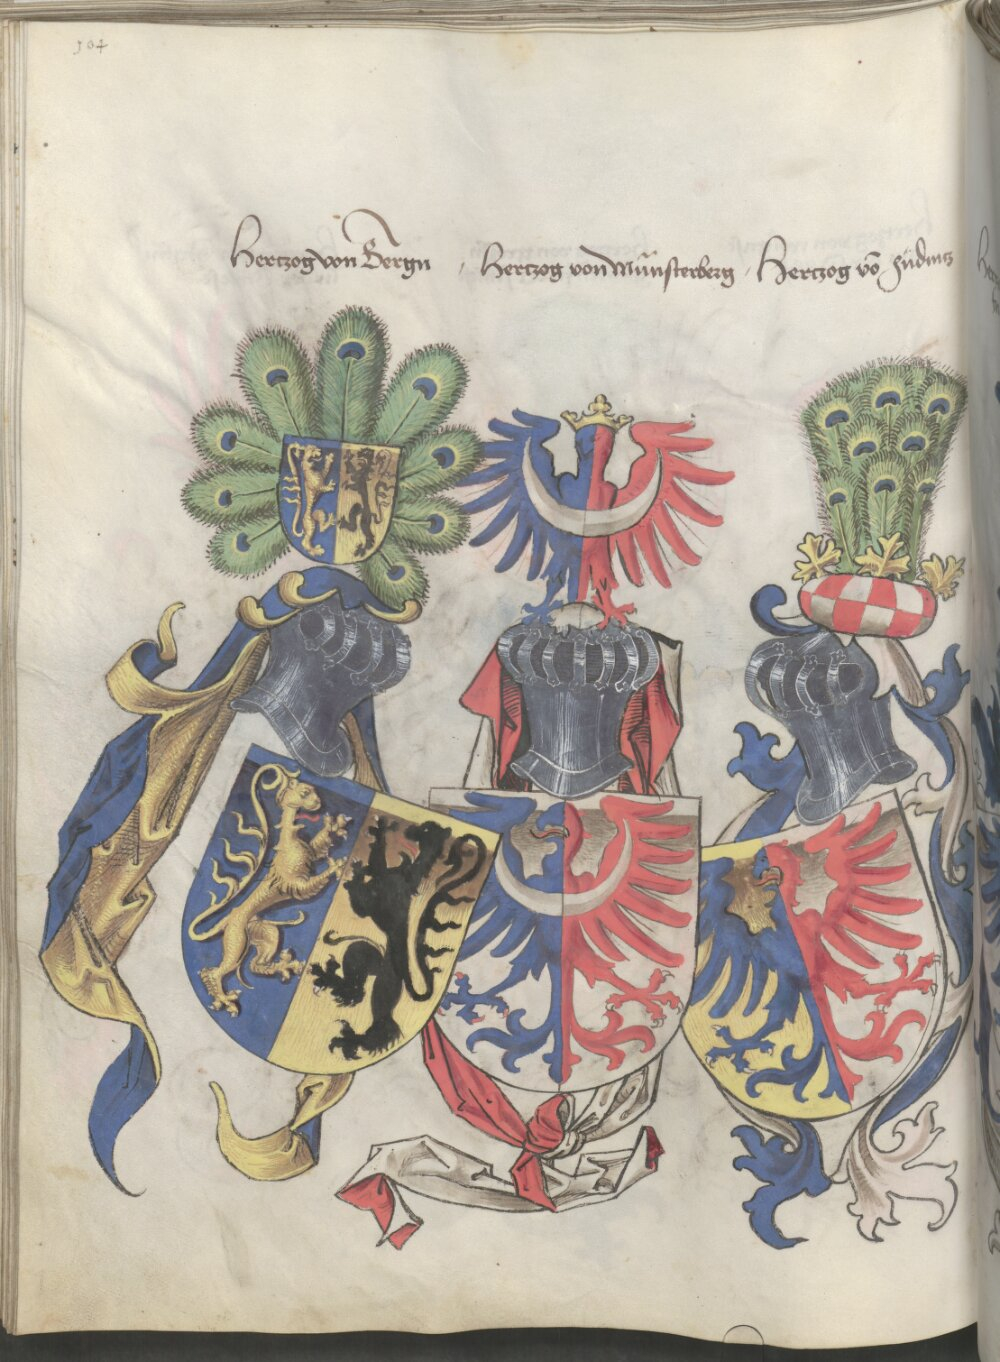 104
Hertzog von Bergn
Hertzog von Münsterberg
Hertzog vō